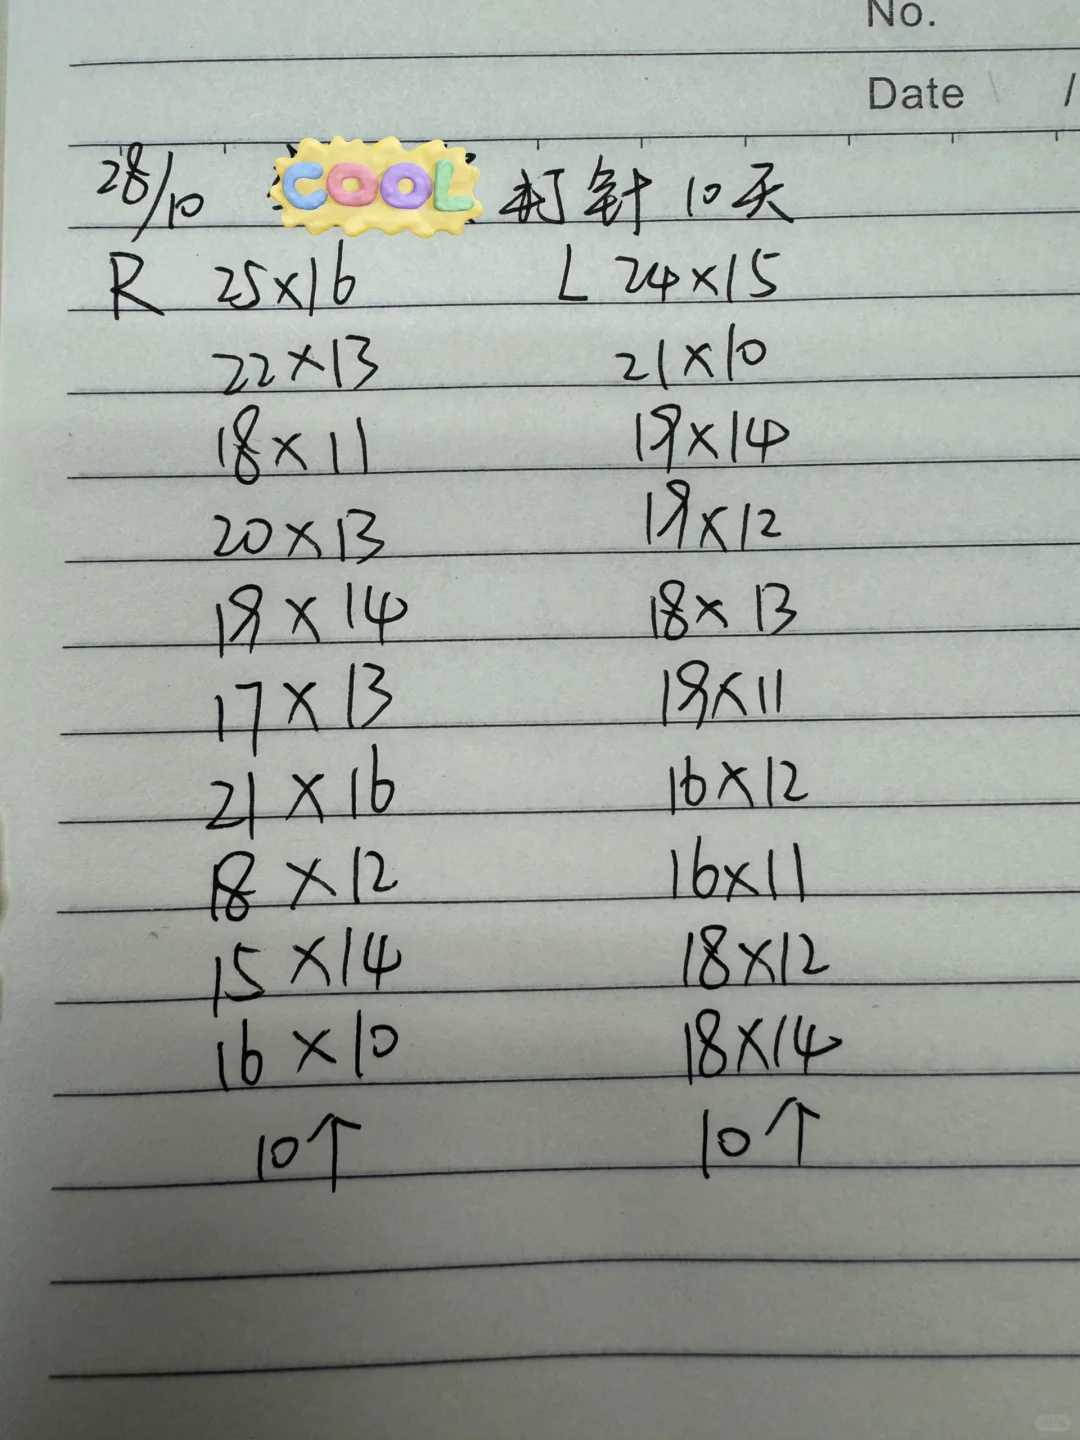 No.
Date /
28/10 COOL 打针 10天
R 25×16 L 24×15
22×13 21×10
18×11 19×14
20×13 19×12
19×14 18×13
17×13 19×11
21×16 16×12
18×12 16×11
15×14 18×12
16×10 18×14
10个 10个